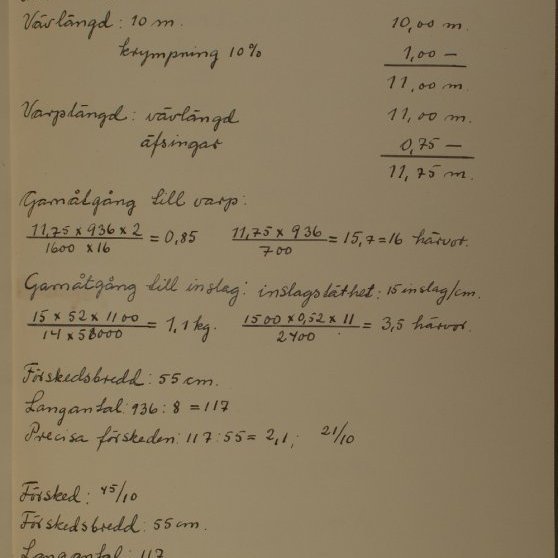 Vävlängd: 10 m. 10,00 m.
krympning 10% 1,00 —
11,00 m.
Varplängd: vävlängd 11,00 m.
äfsingar 0,75 —
11,75 m.
Garnåtgång till varp:
11,75 x 936 x 2 / 1600 x 16 = 0,85 11,75 x 936 / 700 = 15,7 = 16 härvor.
Garnåtgång till inslag: inslagstäthet: 15 inslag/cm.
15 x 52 x 1100 / 14 x 58000 = 1,1 kg. 1500 x 0,52 x 11 / 2400 = 3,5 härvor.
Förskedsbredd: 55 cm.
Langantal: 936 : 8 = 117
Precisa förskeden: 117 : 55 = 2,1; 21/10
Försked: 45/10
Förskedsbredd: 55 cm.
Langantal: 117